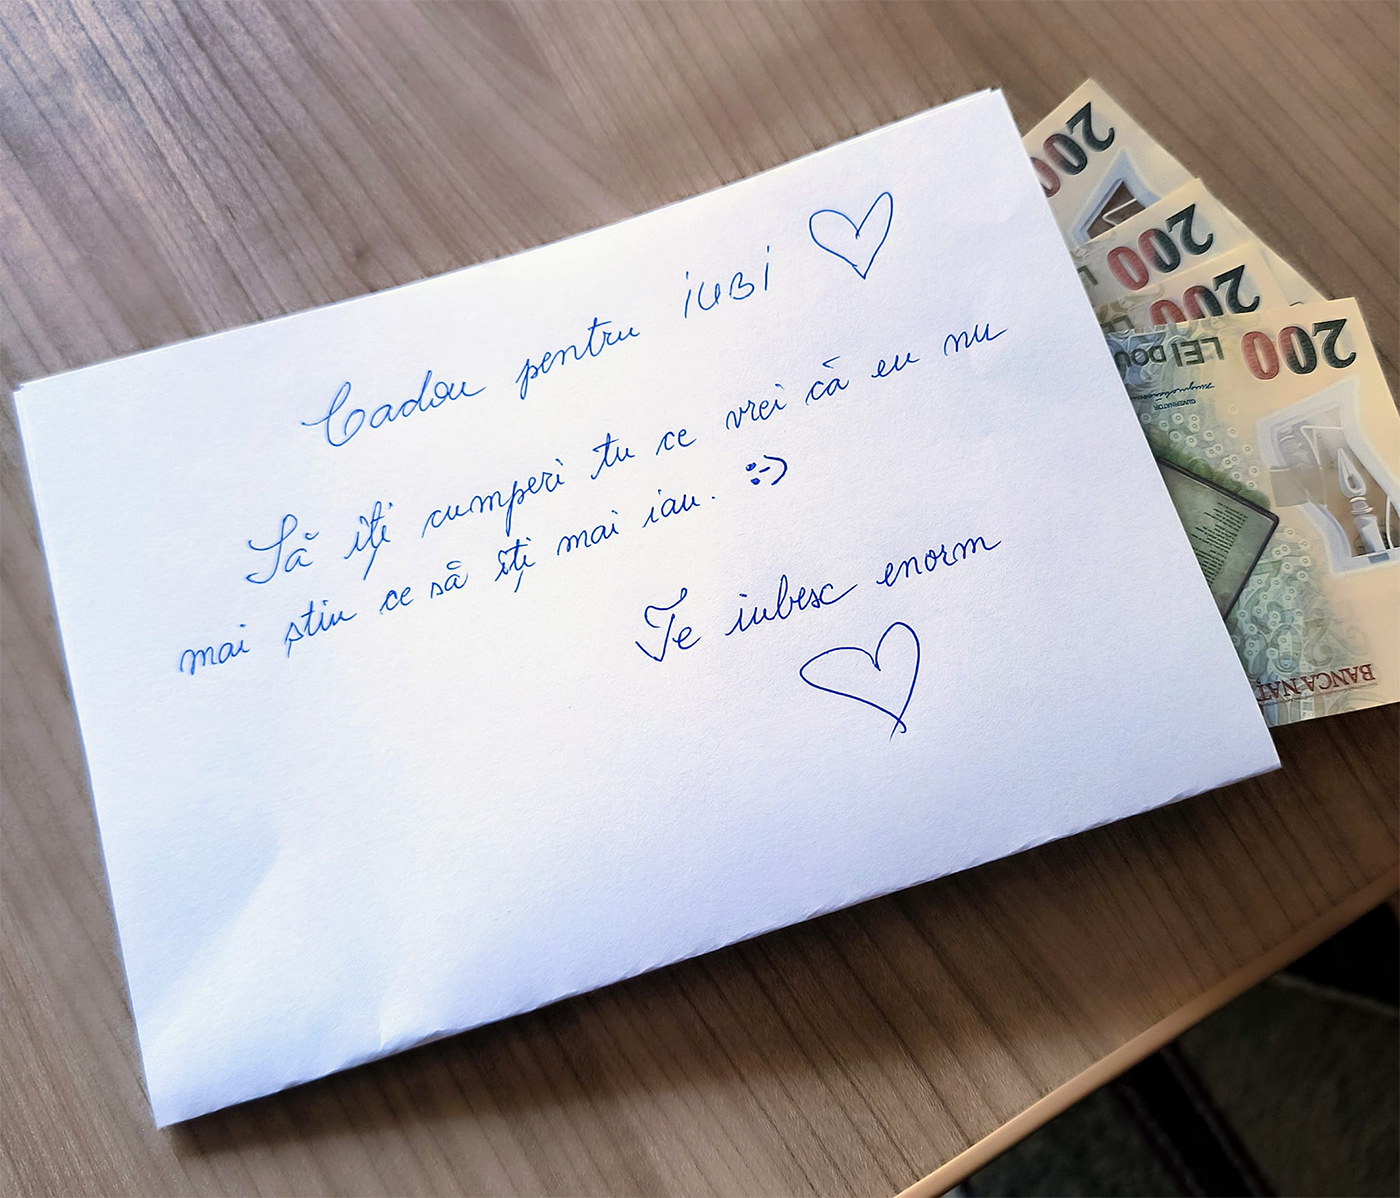 Cadou pentru iubi ♡
Să îți cumperi tu ce vrei că eu nu
mai știu ce să îți mai iau. :-)
Te iubesc enorm
♡
200
200
200
200
LEI DOU
GUVERNATOR
BANCA NAȚ